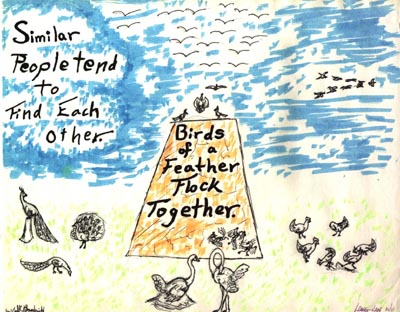 Similar
People tend
to
Find Each
Other.
Birds
of a
Feather
Flock
Together.